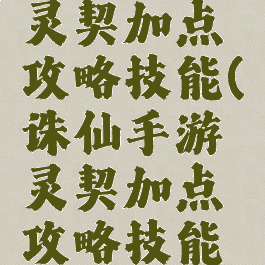 灵契加点
攻略技能(
诛仙手游
灵契加点
攻略技能